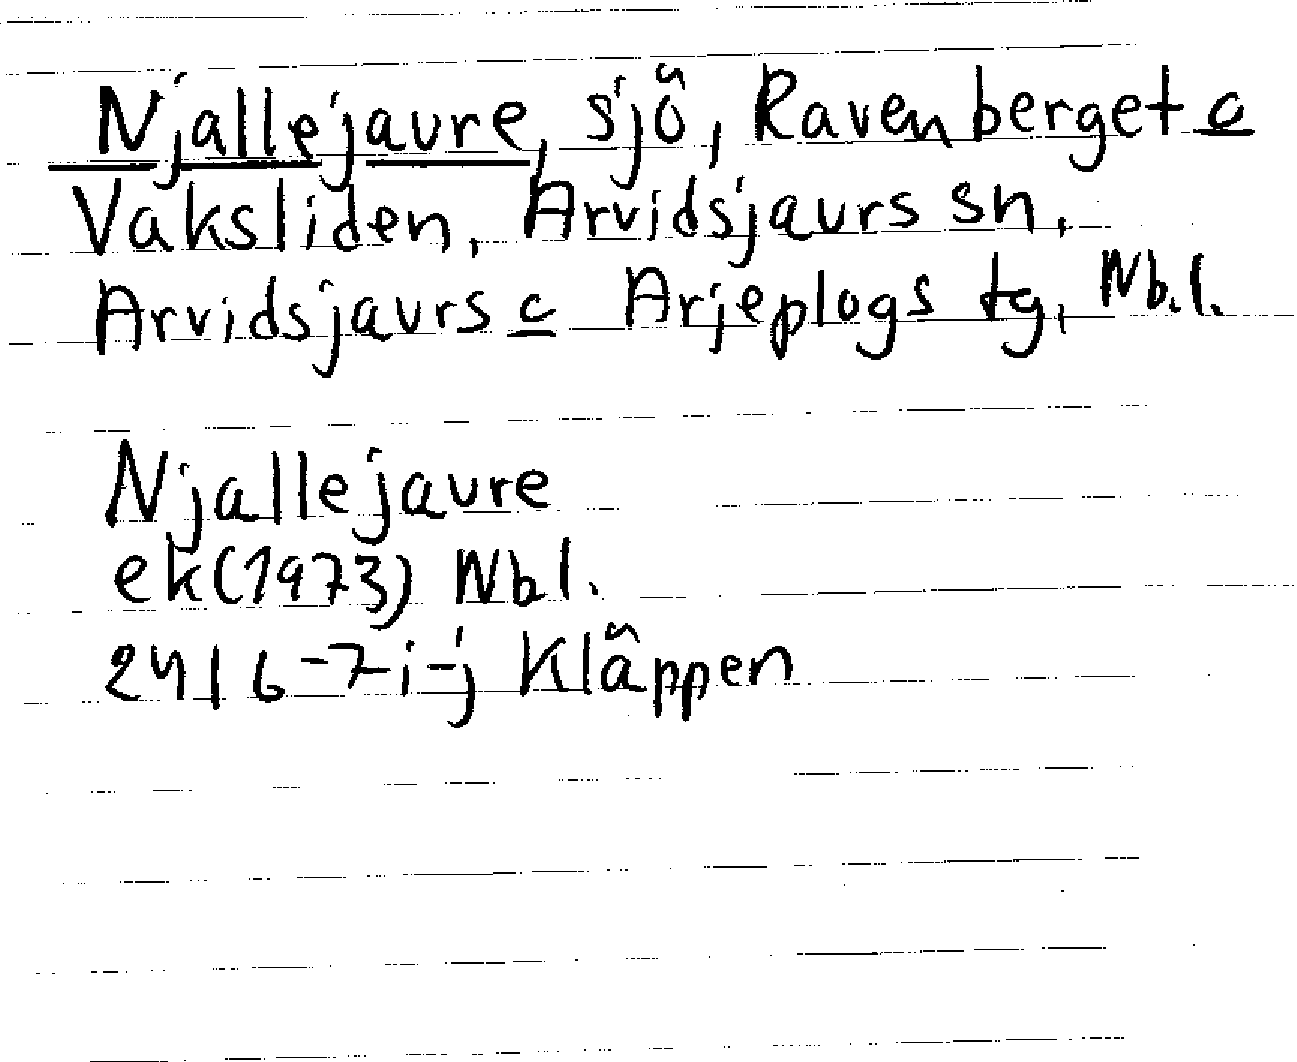 Njallejaure, sjö, Ravenberget o
Vaksliden, Arvidsjaurs sn,
Arvidsjaurs o Arjeplogs tg, Nb.l.
Njallejaure
ek(1973) Nbl.
24I 6-7i-j Kläppen